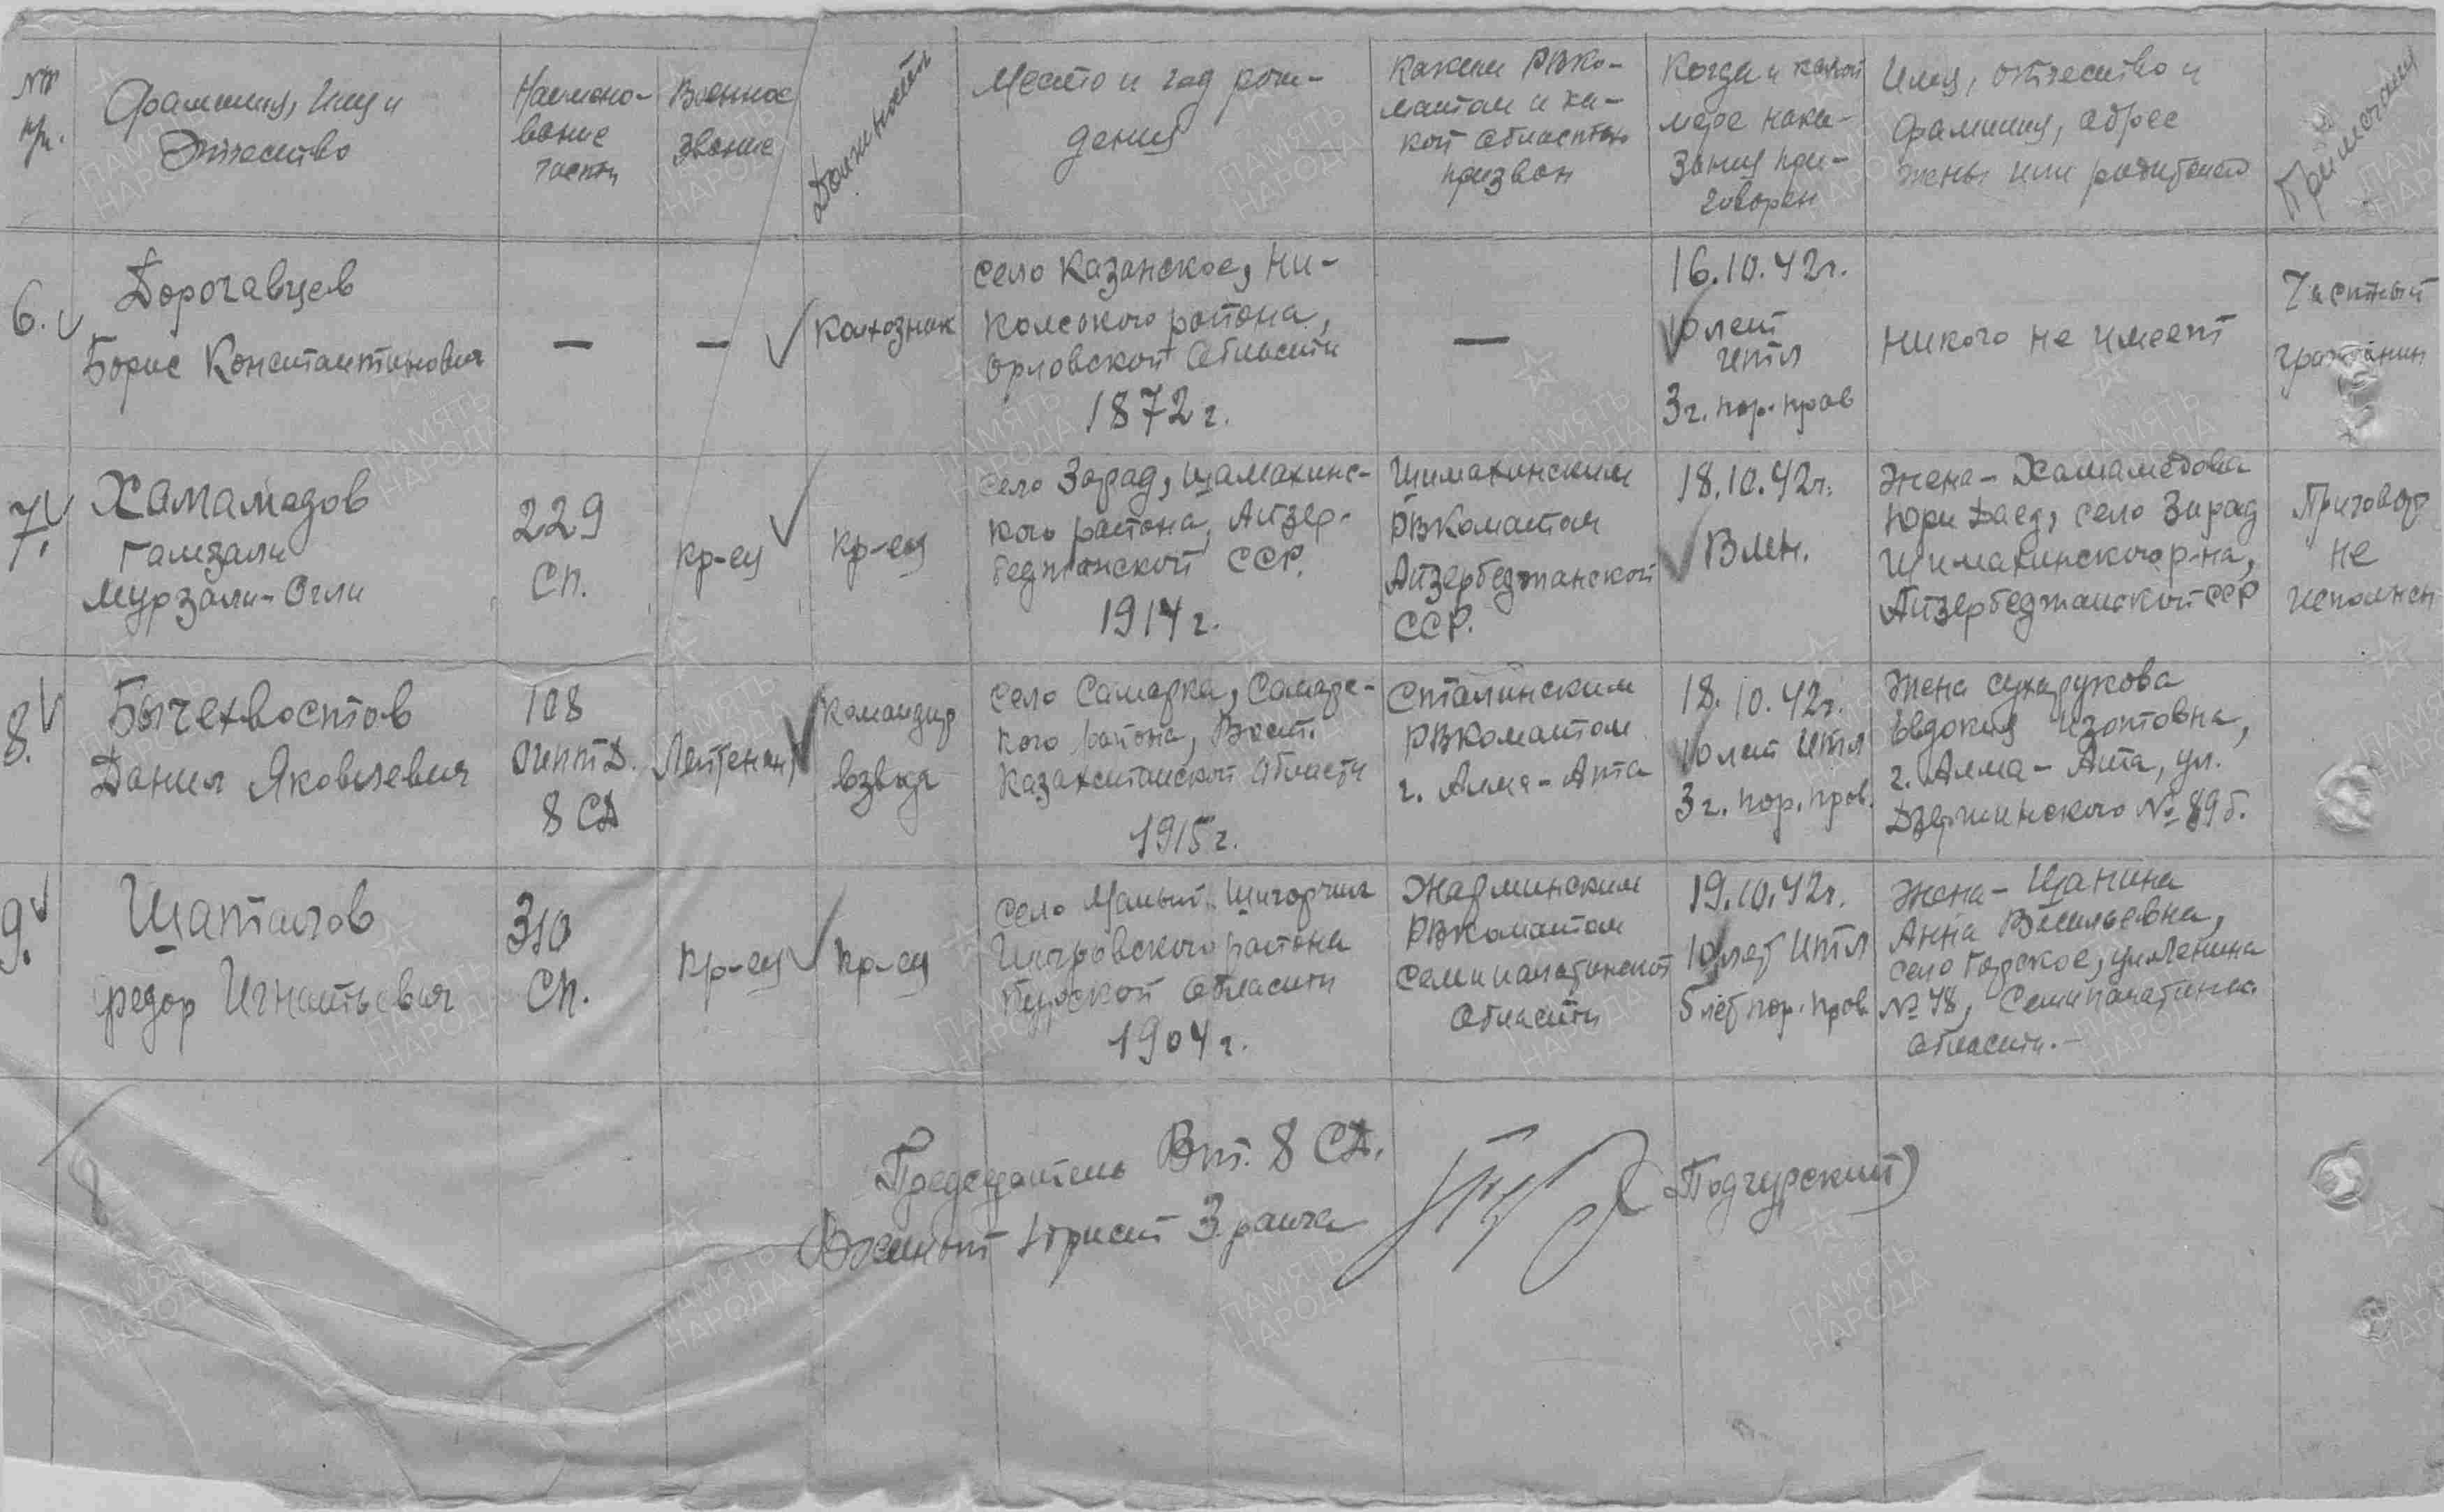 №№ пп.
Фамилия, Имя и
Отчество
Наимено-
вание
части
Военное
звание
Должность
Место и год рож-
дения
Каким РВКо-
матом и ка-
кой областью
призван
Когда и какой
мере нака-
зания при-
говорен
Имя, отчество и
фамилия, адрес
жены или родителей
Примечание
6.
Дорогавцев
Борис Константинович
—
—
Колхозник
село Казанское, Ни-
кольского района,
Орловской области
1872 г.
—
16.10.42г.
10 лет
ИТЛ
3 г. пор. прав
Никого не имеет
Частный
гражданин
7.
Хамамедов
Гамзали
Мурзали-Огли
229
СП.
кр-ец
кр-ец
село Зарад, Шамахинс-
кого района, Айзер-
беджанской ССР.
1914 г.
Шимахинским
РВКоматом
Айзербеджанской
ССР.
18.10.42г.
ВМН.
Жена – Хамамедова
Юри Даед, село Зирад
Шимахинского р-на,
Айзербеджанской ССР
Приговор
не
исполнен
8.
Бычехвостов
Данил Яковлевич
108
ОИПТД.
8 СД
Лейтенант
командир
взвода
село Самарка, Самарс-
кого района, Вост.
Казахстанской области
1915 г.
Сталинским
РВКоматом
г. Алма-Ата
18.10.42г.
10 лет ИТЛ
3 г. пор. прав.
Жена Сухарукова
Евдокия Изотовна,
г. Алма-Ата, ул.
Дзержинского № 89 б.
9.
Шаталов
Федор Игнатьевич
310
СП.
кр-ец
кр-ец
село Малый
района
Курской области
1904 г.
Жарминским
РВКоматом
Семипалатинской
области
19.10.42г.
10 лет ИТЛ
5 лет пор. прав
Жена – Щанина
Анна Васильевна,
село Горское, ул. Ленина
№ 48, Семипалатинск.
области.-
Председатель ВТ. 8 СД.
Военный юрист 3 ранга
Подгурский)
8
ПАМЯТЬ
НАРОДА